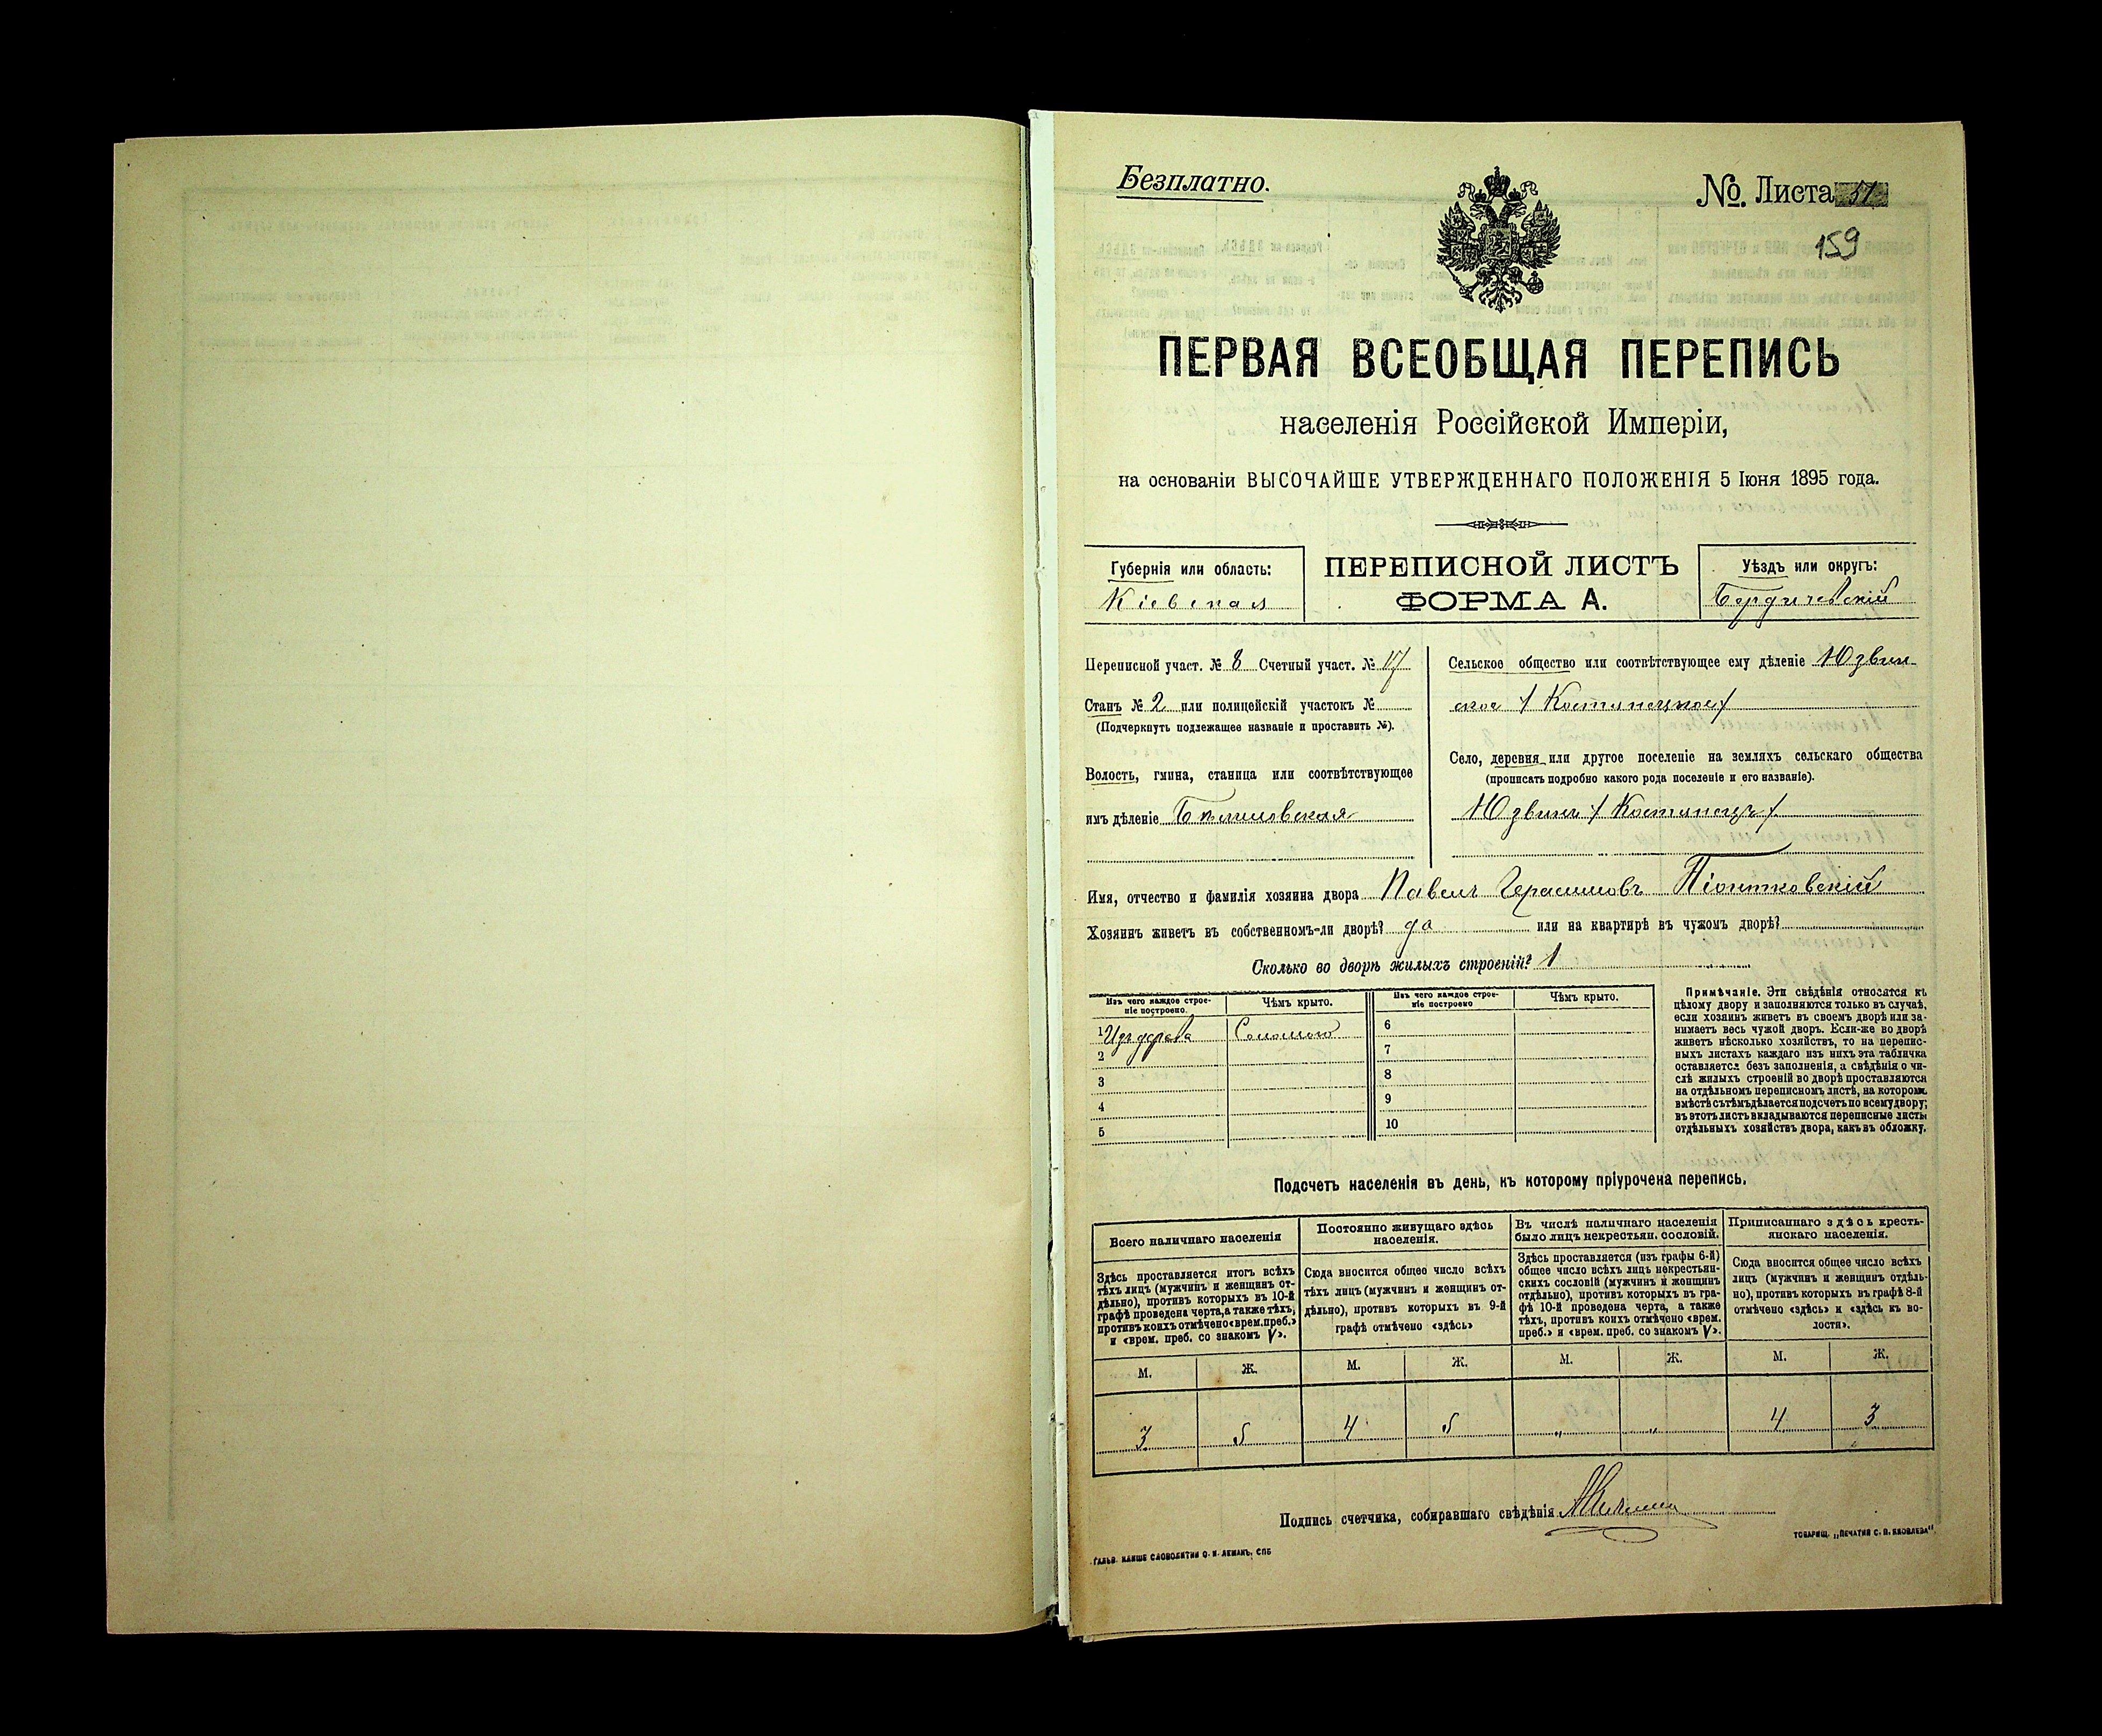 Безплатно.
№. Листа 51
159
ПЕРВАЯ ВСЕОБЩАЯ ПЕРЕПИСЬ
населенія Россійской Имперіи,
на основаніи ВЫСОЧАЙШЕ УТВЕРЖДЕННАГО ПОЛОЖЕНІЯ 5 Іюня 1895 года.
Губернія или область:
Кіевская
ПЕРЕПИСНОЙ ЛИСТЪ
ФОРМА А.
Уѣздъ или округъ:
Бердичевскій
Переписной участ. № 8 Счетный участ. № 17
Станъ № 2 или полицейскій участокъ №
(Подчеркнуть подлежащее названіе и проставить №).
Волость, гмина, станица или соотвѣтствующее
имъ дѣленіе Бѣлиловская
Сельское общество или соотвѣтствующее ему дѣленіе Юзвин
ское / Костинецкое /
Село, деревня или другое поселеніе на земляхъ сельскаго общества
(прописать подробно какого рода поселеніе и его названіе).
Юзвин / Костинецъ /
Имя, отчество и фамилія хозяина двора Павелъ Герасимовъ Піонтковскій
Хозяинъ живетъ въ собственномъ-ли дворѣ? да или на квартирѣ въ чужомъ дворѣ?
Сколько во дворѣ жилыхъ строеній? 1
Изъ чего каждое строе-
ніе построено.
Чѣмъ крыто.
Изъ чего каждое строе-
ніе построено
Чѣмъ крыто.
1 Изъ дерева Соломою
2
3
4
5
6
7
8
9
10
Примѣчаніе. Эти свѣдѣнія относятся къ
цѣлому двору и заполняются только въ случаѣ,
если хозяинъ живетъ въ своемъ дворѣ или за-
нимаетъ весь чужой дворъ. Если-же во дворѣ
живетъ нѣсколько хозяйствъ, то на перепис-
ныхъ листахъ каждаго изъ нихъ эта табличка
оставляется безъ заполненія, а свѣдѣнія о чи-
слѣ жилыхъ строеній во дворѣ проставляются
на отдѣльномъ переписномъ листѣ, на которомъ
вмѣстѣ съ тѣмъ дѣлается подсчетъ по всему двору;
въ этотъ листъ вкладываются переписные листы
отдѣльныхъ хозяйствъ двора, какъ въ обложку.
Подсчетъ населенія въ день, къ которому пріурочена перепись.
Всего наличнаго населенія
Здѣсь проставляется итогъ всѣхъ
тѣхъ лицъ (мужчинъ и женщинъ от-
дѣльно), противъ которыхъ въ 10-й
графѣ проведена черта, а также тѣхъ,
противъ коихъ отмѣчено «врем. преб.»
и «врем. преб. со знакомъ V».
Постоянно живущаго здѣсь
населенія.
Сюда вносится общее число всѣхъ
тѣхъ лицъ (мужчинъ и женщинъ от-
дѣльно), противъ которыхъ въ 9-й
графѣ отмѣчено «здѣсь»
Въ числѣ наличнаго населенія
было лицъ некрестьян. сословій.
Здѣсь проставляется (изъ графы 6-й)
общее число всѣхъ лицъ некрестьян-
скихъ сословій (мужчинъ и женщинъ
отдѣльно), противъ которыхъ въ гра-
фѣ 10-й проведена черта, а также
тѣхъ, противъ коихъ отмѣчено «врем.
преб.» и «врем. преб. со знакомъ V».
Приписаннаго здѣсь кресть-
янскаго населенія.
Сюда вносится общее число всѣхъ
лицъ (мужчинъ и женщинъ отдѣль-
но), противъ которыхъ въ графѣ 8-й
отмѣчено «здѣсь» и «здѣсь къ во-
лости».
М. Ж. М. Ж. М. Ж. М. Ж.
3 5 4 5 „ „ 4 3
Подпись счетчика, собиравшаго свѣдѣнія
ГАЛЬВ. КЛИШЕ СЛОВОЛИТНИ О. И. ЛЕМАНЪ, СПБ
ТОВАРИЩ. „ПЕЧАТНЯ С. П. ЯКОВЛЕВА“.